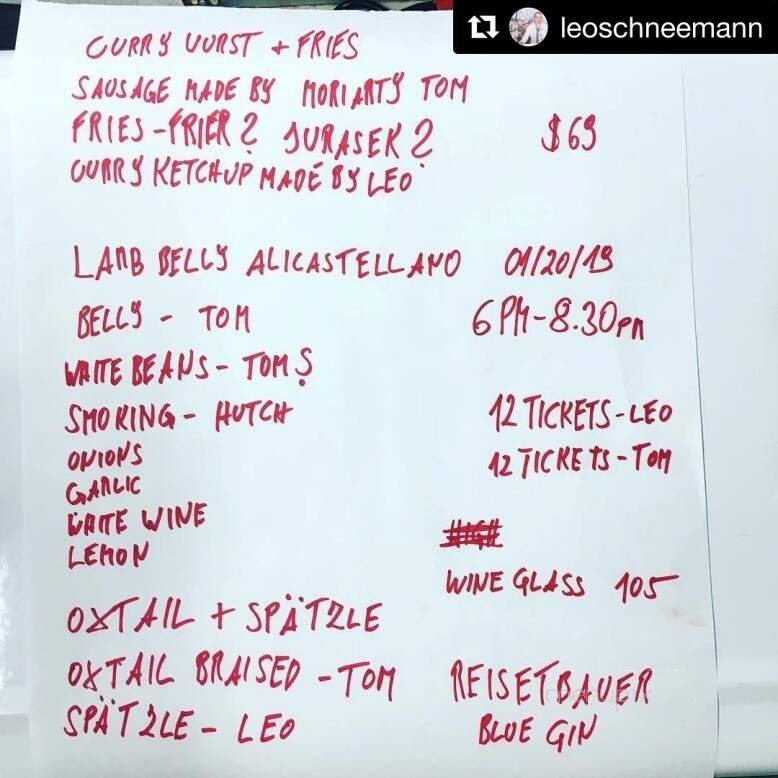 leoschneemann
CURRY WURST + FRIES
SAUSAGE MADE BY MORIARTY TOM
FRIES - FRIER ? JURASEK ?
$69
CURRY KETCHUP MADE BY LEO
LAMB BELLY ALICASTELLANO
01/20/19
BELLY - TOM
6 PM - 8.30 PM
WHITE BEANS - TOM S
SMOKING - HUTCH
12 TICKETS - LEO
ONIONS
12 TICKETS - TOM
GARLIC
WHITE WINE
LEMON
WINE GLASS 105
OXTAIL + SPÄTZLE
OXTAIL BRAISED - TOM
REISETBAUER
SPÄTZLE - LEO
BLUE GIN